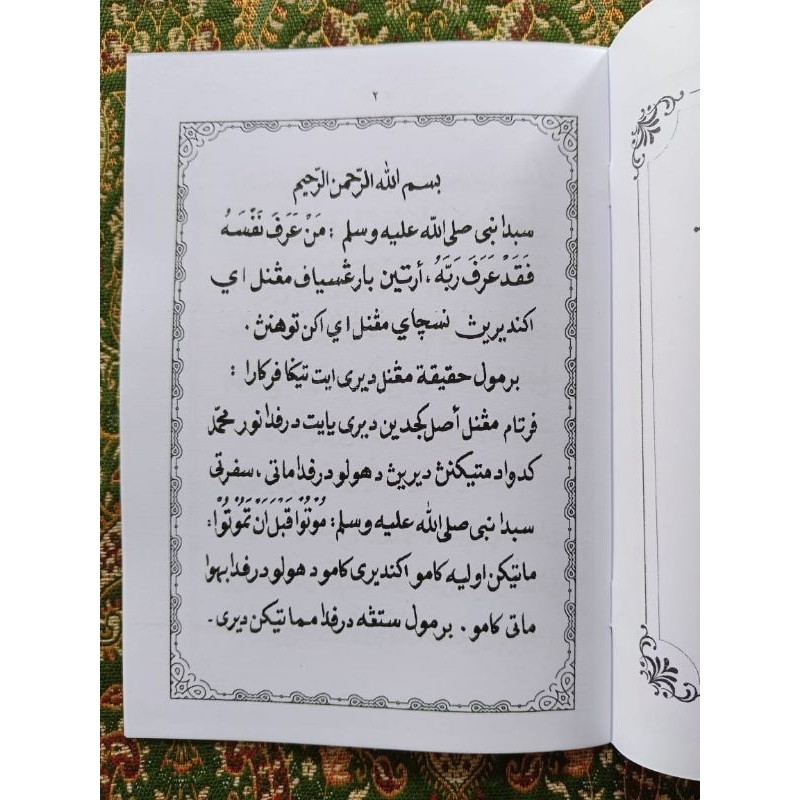 ٢
بسم الله الرّحمن الرّحيم
سبدا نبي صلى الله عليه وسلم : مَنْ عَرَفَ نَفْسَهُ
فَقَدْ عَرَفَ رَبَّهُ ، أرتين بارڠسياف مڠنل اي
اكنديرين نسچاي مڠنل اي اكن توهنڽ .
برمول حقيقة مڠنل ديرى ايت تيݢا فركارا :
فرتام مڠنل أصل كجدين ديرى يايت درفدا نور محمّد
كدوا متيكنڽ ديرين دهولو درفدا ماتى ، سفرتى
سبدا نبي صلى الله عليه وسلم : مُوْتُوْا قَبْلَ اَنْ تَمُوْتُوْا :
ماتيكن اوليه كامو اكنديرى كامو دهولو درفدا بهوا
ماتى كامو . برمول ستڠه درفدا مماتيكن ديرى -